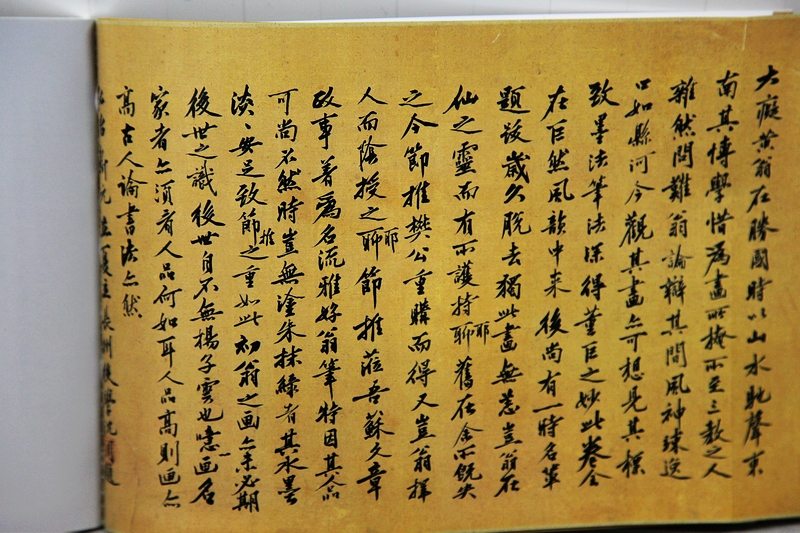 大癡黃翁在勝國時以山水馳聲東
南其博學惜為畫所掩所至三教之人
雜然問難翁論辯其間風神竦逸
口如懸河今觀其畫亦可想見其標
致墨法筆法深得董巨之妙此卷全
在巨然風韻中来後尚有一時名輩
題跋歲久脫去獨此畫無恙豈翁在
仙之靈而有所護持耶舊在余所既失
之今節推樊公重購而得又豈翁擇
人而陰授之耶節推蒞吾蘇文章
政事著爲名流雅好翁筆特因其人品
可尚不然時豈無塗朱抹綠者其水墨
淡淡安足致節推之重如此初翁之画亦未必期
後世之識後世自不無楊子雲也噫以画名
家者亦須看人品何如耳人品高則画亦
高古人論書法亦然
弘治新元立夏立長洲後學沈周題